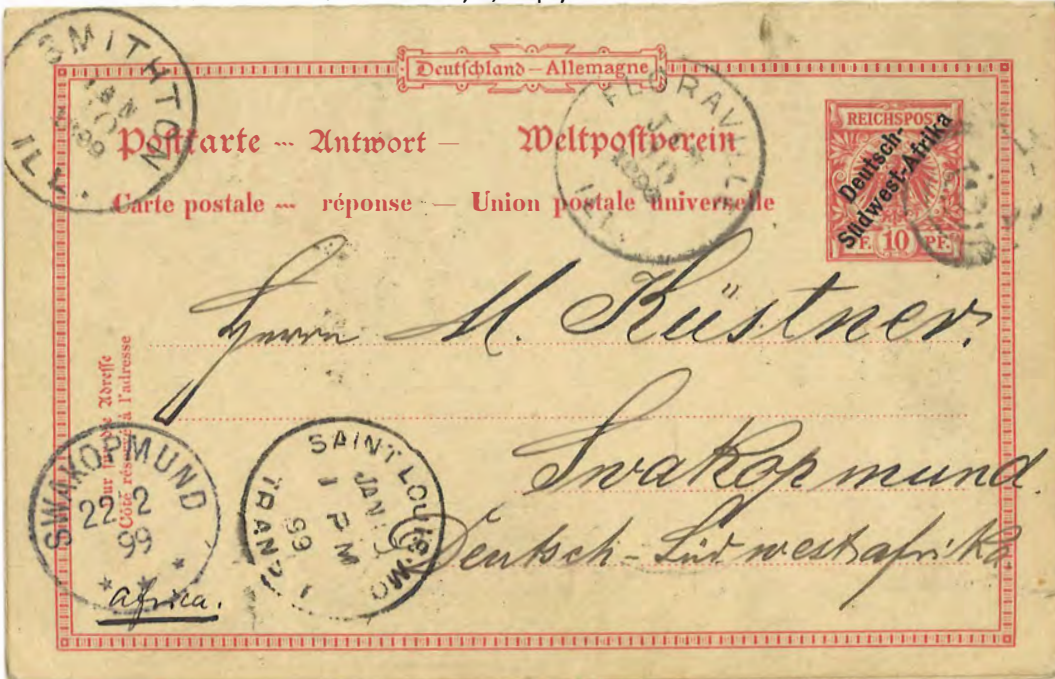 Deutschland – Allemagne
SMITHTON
JAN
99
ILL.
FLORAVILLE
ILL.
Postkarte --- Antwort — Weltpostverein
Carte postale --- réponse — Union postale universelle
REICHSPOST
Deutsch-
Südwest-Afrika
PF. 10 PF.
Herrn M. Küstner.
Swakopmund.
Deutsch-Südwestafrika
Nur für die Adresse
Côté réservé à l'adresse
SWAKOPMUND
22 2
99
Africa.
SAINT LOUIS, MO
JAN
1 PM
99
TRANSIT